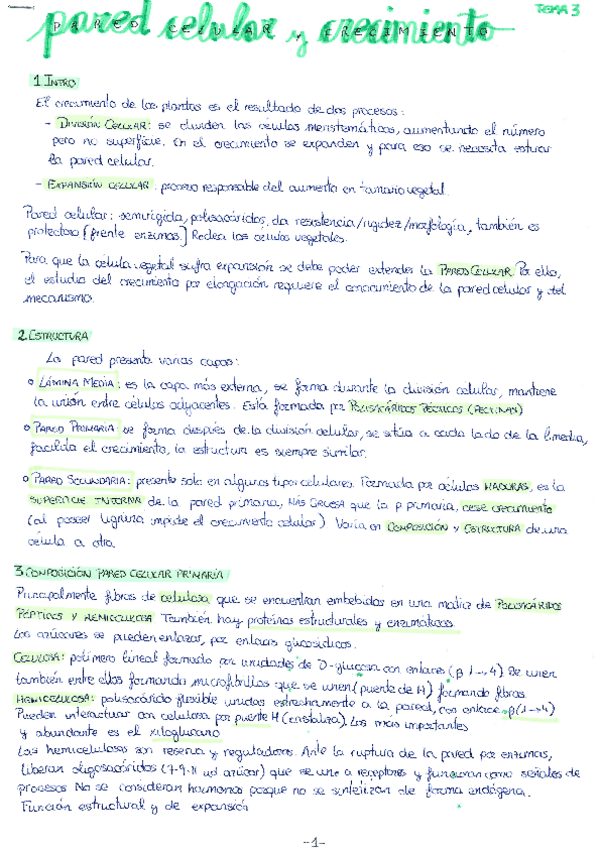 TEMA 3
pared celular y crecimiento
PARED CELULAR Y CRECIMIENTO
1 INTRO
El crecimiento de las plantas es el resultado de dos procesos:
- DIVISIÓN CELULAR: se dividen las células meristemáticas, aumentando el número
pero no superficie. En el crecimiento se expanden y para eso se necesita estirar
la pared celular.
- EXPANSIÓN CELULAR: proceso responsable del aumento en tamaño vegetal.
Pared celular: semirígida, polisacáridos, da resistencia/rigidez/morfología, también es
protectora [frente enzimas.] Rodea las células vegetales.
Para que la célula vegetal sufra expansión se debe poder extender la PARED CELULAR. Por ello,
el estudio del crecimiento por elongación requiere el conocimiento de la pared celular y del
mecanismo.
2 ESTRUCTURA
La pared presenta varias capas:
o LÁMINA MEDIA: es la capa más externa, se forma durante la división celular, mantiene
la unión entre células adyacentes. Está formada por POLISACÁRIDOS PÉCTICOS (PECTINAS)
o PARED PRIMARIA: se forma después de la división celular, se sitúa a cada lado de la l.media,
facilita el crecimiento, la estructura es siempre similar.
o PARED SECUNDARIA: presente solo en algunos tipos celulares. Formada por células MADURAS, es la
SUPERFICIE INTERNA de la pared primaria, MÁS GRUESA que la p primaria, cese crecimiento
(al poseer lignina impide el crecimiento celular) Varía en COMPOSICIÓN y ESTRUCTURA de una
célula a otra.
3 COMPOSICIÓN PARED CELULAR PRIMARIA
Principalmente fibras de celulosa, que se encuentran embebidas en una matriz de POLISACÁRIDOS
PÉPTICOS Y HEMICELULOSA También hay proteínas estructurales y enzimáticas.
Los azúcares se pueden enlazar, por enlaces glucosídicos.
CELULOSA: polímero lineal formado por unidades de D-glucosa con enlaces (β 1→4) Se unen
también entre ellas formando microfibrillas que se unen (puente de H) formando fibras.
HEMICELULOSA: polisacárido flexible unidas estrechamente a la pared, con enlace β(1→4)
Pueden interactuar con celulosa por puente H (cristaliza). Los más importantes
y abundante es el xiloglucano
Las hemicelulosas son reserva y reguladores. Ante la ruptura de la pared por enzimas,
liberan oligosacáridos (7-9-11 ud azúcar) que se une a receptores y funcionan como señales de
procesos No se consideran hormonas porque no se sintetizan de forma endógena.
Función estructural y de expansión
-1-